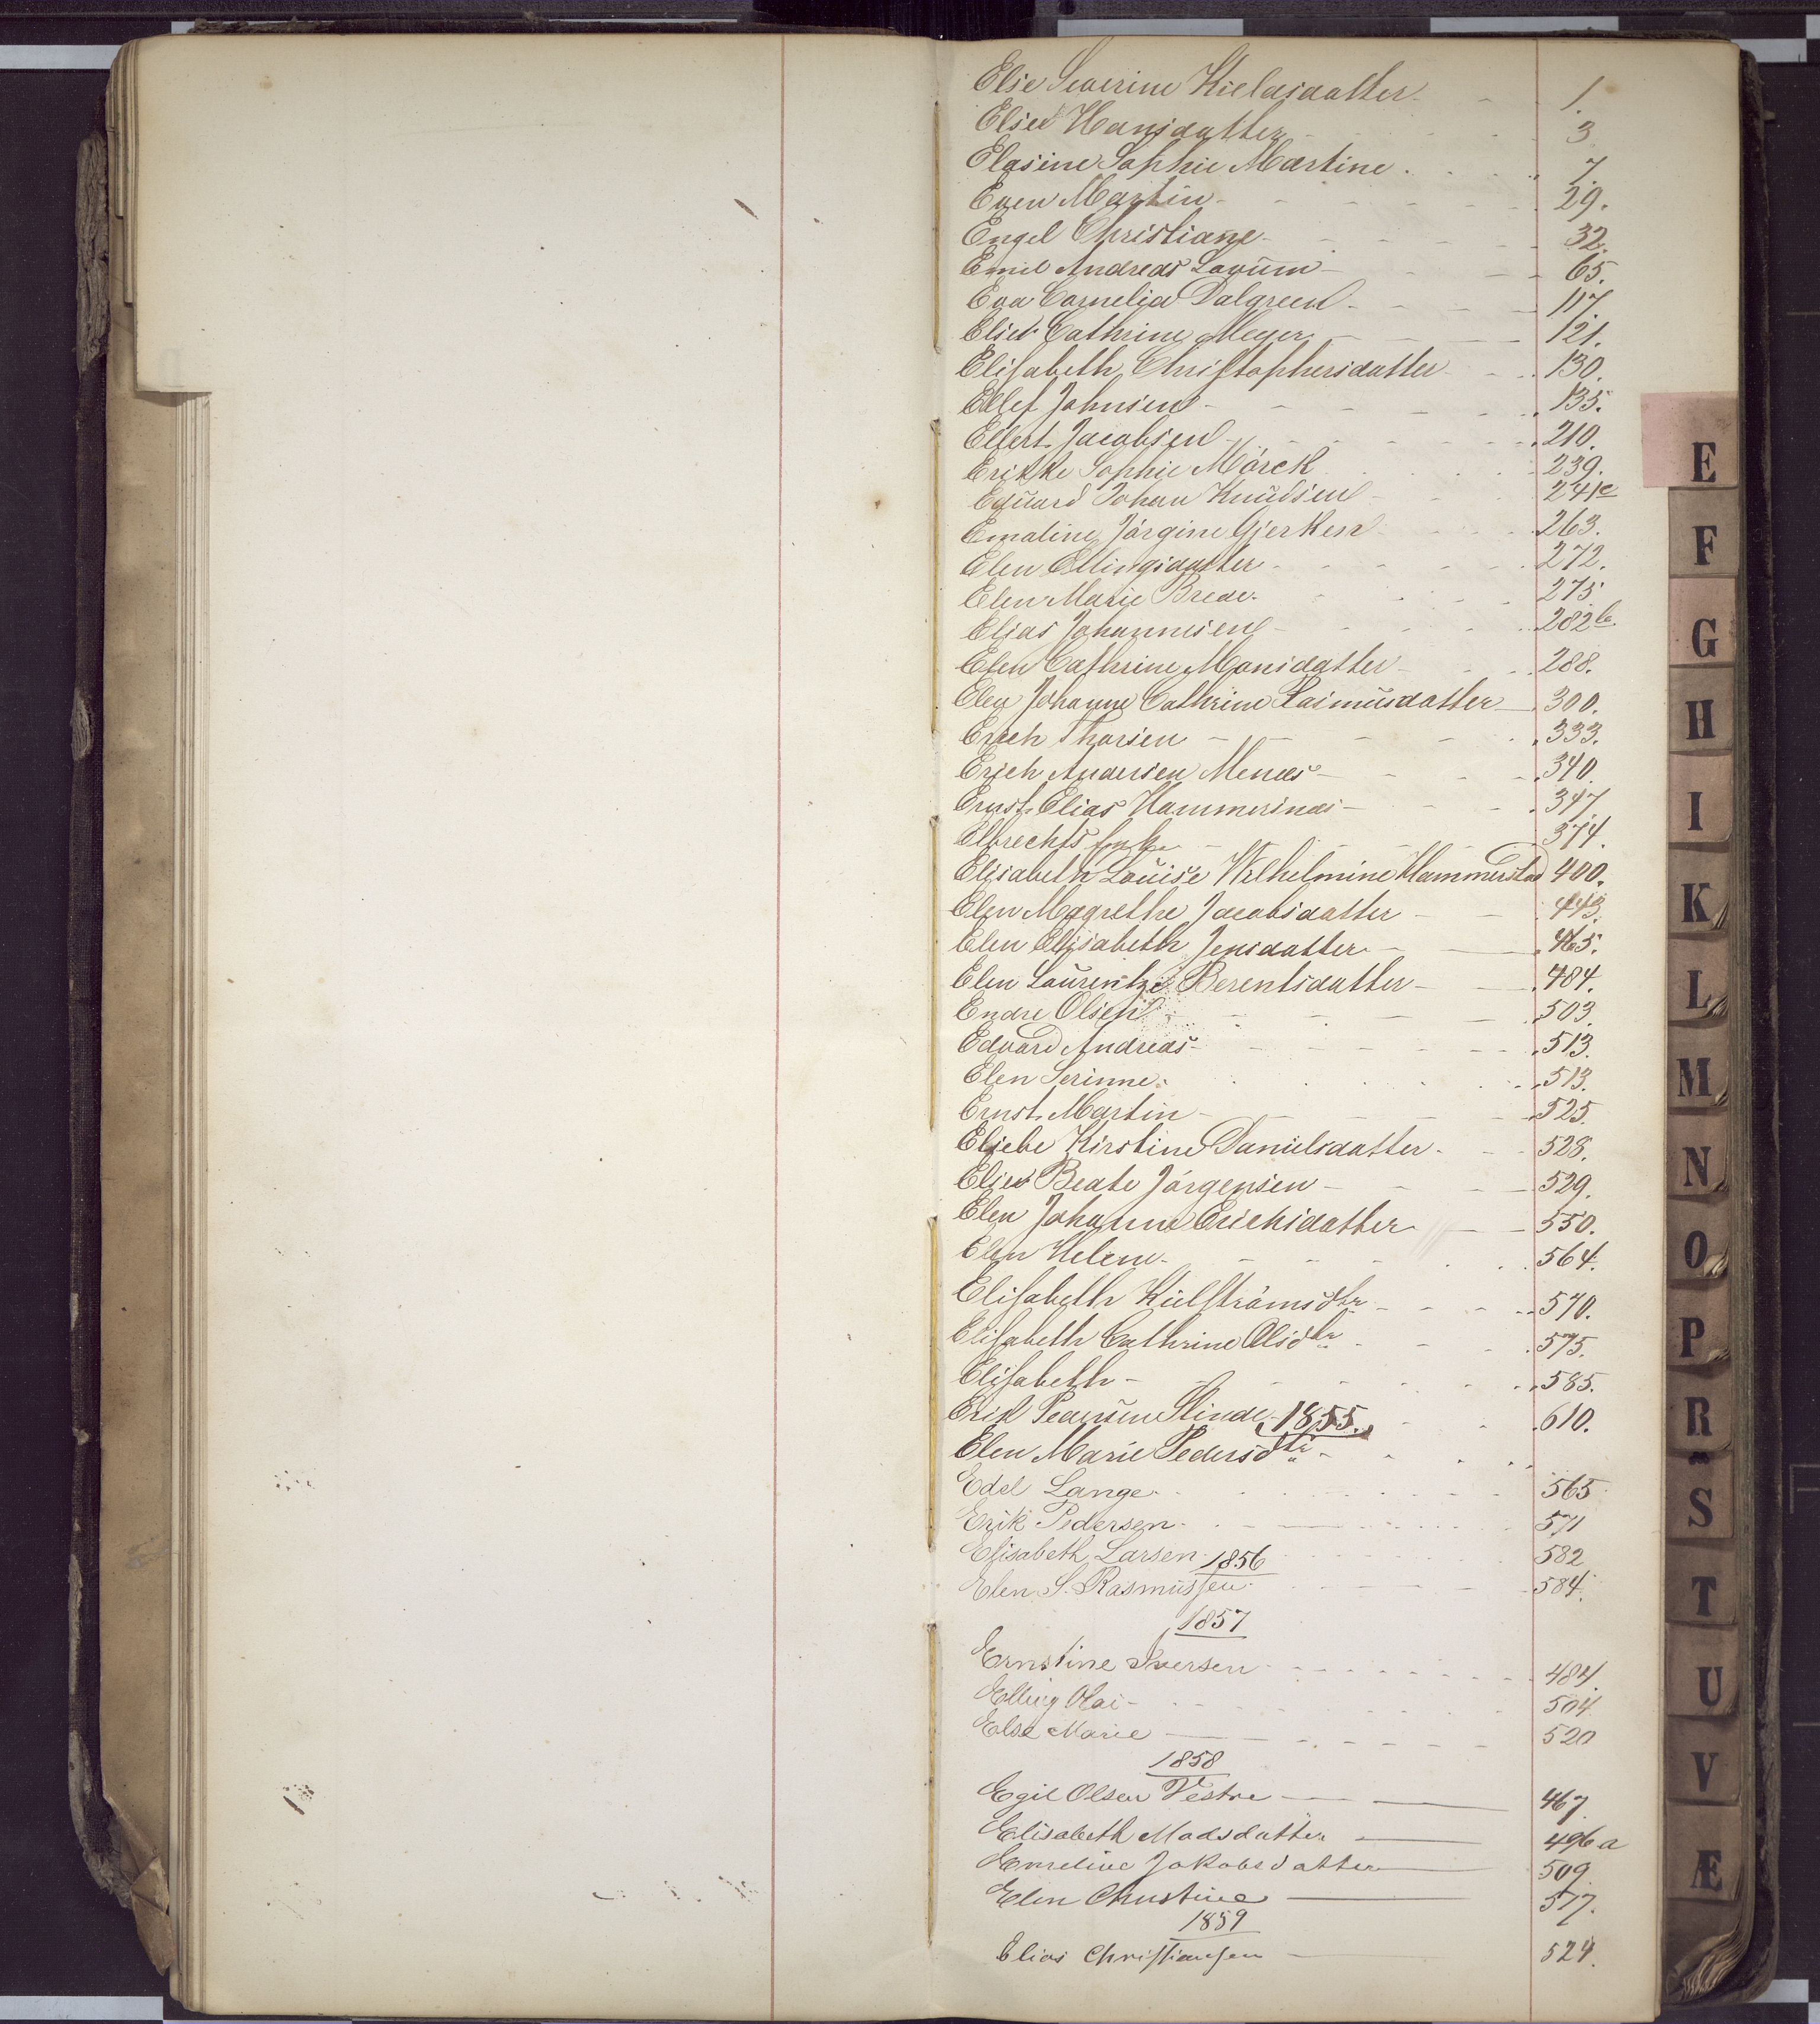 Else Severine Kieldsdatter 1.
Elsee Hansdatter 3
Elasine Sophie Martine 7.
Even Martin 29.
Engel Christiane 32.
Emil Andreas Lavum 65.
Eva Cornelia Dalgreen 117.
Elise Cathrine Meyer 121.
Elisabeth Christophersdatter 130.
Ellef Johnsen 135.
Ellert Jacobsen 210.
Erikke Sophie Mörck 239.
Eduard Johan Knudsen 241c
Emaline Jörgine Gjerken 263.
Elen Ellingsdatter 272.
Elen Marie Brede 275
Elias Johannesen 282b.
Elen Cathrine Monsdatter 288.
Elen Johanne Cathrine Rasmusdatter 300.
Erich Thorsen 333.
Erich Andersen Menes 340.
Ernst Elias Hammerinds 347.
Elbrechts 374.
Elisabeth Louise Wilhelmine Hammerstad 400.
Elen Magrethe Jacobsdatter 443.
Elen Elisabeth Jensdatter 465.
Elen Laurentze Berentsdatter 484.
Endre Olsen 503.
Edvard Andreas 513.
Elen Serinne 513.
Ernst Martin 525.
Eliebe Kirstine Danielsdatter 528.
Elise Beate Jörgensen 529.
Elen Johanne Erichsdatter 550.
Elen Helene 564.
Elisabeth Kielströmsdtr 570.
Elisabeth Cathrine Olsdtr 575.
Elisabeth 585.
Erik Pedersen Slinde 1855. 610.
Elen Marie Pedersdtr
Edel Lange 565
Erik Pedersen 571
Elisabeth Larsen 582
1856
Elen S. Rasmussen 584.
1857
Ernstine Iversen 484.
Elling Olai 504
Else Marie 520
1858
Egil Olsen Vestre 467.
Elisabeth Madsdatter 496a
Emeline Jakobsdatter 509.
Elen Christine 517.
1859
Elias Christiansen 524.
E
F
G
H
I
K
L
M
N
O
P
R
S
T
U
V
Æ